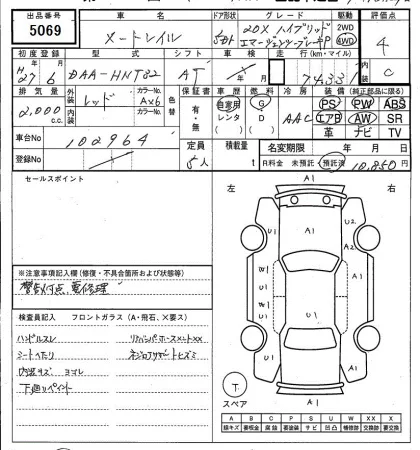 出品番号 車名 ドア形状 グレード 駆動 評価点
5069 X-トレイル 5Dr 20X ハイブリッド 2WD 4
エマージェンシーブレーキP 4WD
初度登録 型式 シフト 車検 走行(km・マイル) 内装
H27/6 DAA-HNT32 AT 年 月 74,331 C
排気量 外装 カラーNo. 色替 保証書 車歴 燃料 冷房 装備(純正部品に限る)
2,000 c.c. レッド AX6 有・無 自家用 G AAC PS PW ABS
内装 カラーNo. レンタ D エアB AW SR
革 ナビ TV
車台No 102964 定員 積載量 名変期限 年 月
登録No 5人 t R料金 未預託 預託済 10,850円
セールスポイント 左 右
※注意事項記入欄(修復・不具合箇所および状態等)
警告灯点 要修理
検査員記入 フロントガラス(A・飛石、X要ス)
ハンドルスレ
シートヘたり
内装キズ ヨゴレ
下廻りペイント
A1
A1
U1
U2
U1
W1
W1
U1
U1
A1
A1
A1
T
スペア
A B C P S U W X XX
線キズ 要板金 腐蝕 要塗装 サビ 凹凸 補修跡 要交換 交換済